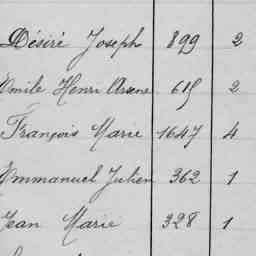 Désiré Joseph 899 2
Emile Henri Arsene 615 2
François Marie 1647 4
Emmanuel Julien 362 1
Jean Marie 328 1